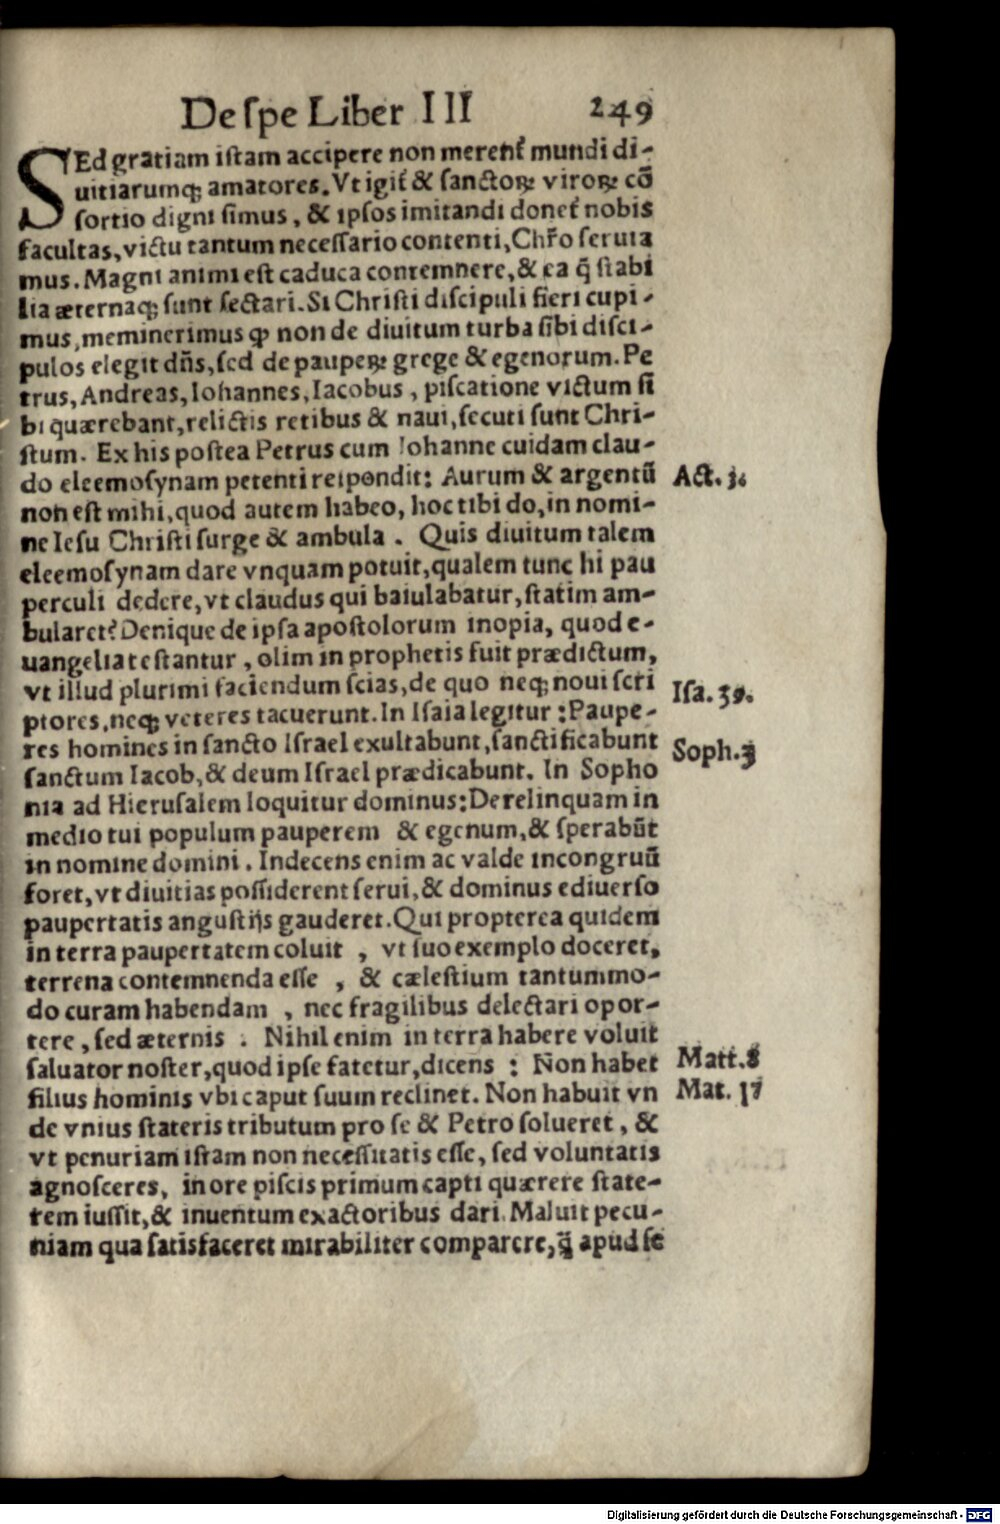 De ſpe Liber III 249
SEd gratiam iſtam accipere non merent᷑ mundi di-
uitiarumq; amatores. Vt igit᷑ & ſanctoꝝ viroꝝ cõ
ſortio digni ſimus, & ipſos imitandi donet᷑ nobis
facultas, victu tantum neceſſario contenti, Chr̃o ſeruia
mus. Magni animi eſt caduca contemnere, & ea q̃ ſtabi
lia æternaq; ſunt ſectari. Si Chriſti diſcipuli fieri cupi-
mus, meminerimus ꝙ non de diuitum turba ſibi diſci-
pulos elegit dñs, ſed de paupeꝝ grege & egenorum. Pe
trus, Andreas, Iohannes, Iacobus, piſcatione victum ſi
bi quærebant, relictis retibus & naui, ſecuti ſunt Chri-
ſtum. Ex his poſtea Petrus cum Iohanne cuidam clau-
do eleemoſynam petenti reſpondit: Aurum & argentũ
Act. 3.
non eſt mihi, quod autem habeo, hoc tibi do, in nomi-
ne Ieſu Chriſti ſurge & ambula. Quis diuitum talem
eleemoſynam dare vnquam potuit, qualem tunc hi pau
perculi dedere, vt claudus qui baiulabatur, ſtatim am-
bularet? Denique de ipſa apoſtolorum inopia, quod e-
uangelia teſtantur, olim in prophetis fuit prædictum,
vt illud plurimi faciendum ſcias, de quo neq; noui ſcri
Iſa. 39.
ptores, neq; veteres tacuerunt. In Iſaia legitur: Paupe-
res homines in ſancto Iſrael exultabunt, ſanctificabunt
Soph. 3
ſanctum Iacob, & deum Iſrael prædicabunt. In Sopho
nia ad Hieruſalem loquitur dominus: Derelinquam in
medio tui populum pauperem & egenum, & ſperabũt
in nomine domini. Indecens enim ac valde incongruũ
foret, vt diuitias poſſiderent ſerui, & dominus ediuerſo
paupertatis anguſtijs gauderet. Qui propterea quidem
in terra paupertatem coluit, vt ſuo exemplo doceret,
terrena contemnenda eſſe, & cæleſtium tantummo-
do curam habendam, nec fragilibus delectari opor-
tere, ſed æternis. Nihil enim in terra habere voluit
ſaluator noſter, quod ipſe fatetur, dicens: Non habet
Matt. 8
filius hominis vbi caput ſuum reclinet. Non habuit vn
Mat. 17
de vnius ſtateris tributum pro ſe & Petro ſolueret, &
vt penuriam iſtam non neceſſitatis eſſe, ſed voluntatis
agnoſceres, in ore piſcis primum capti quærere ſtate-
rem iuſſit, & inuentum exactoribus dari. Maluit pecu-
niam qua ſatisfaceret mirabiliter comparere, q̃ apud ſe
Digitalisierung gefördert durch die Deutsche Forschungsgemeinschaft - DFG